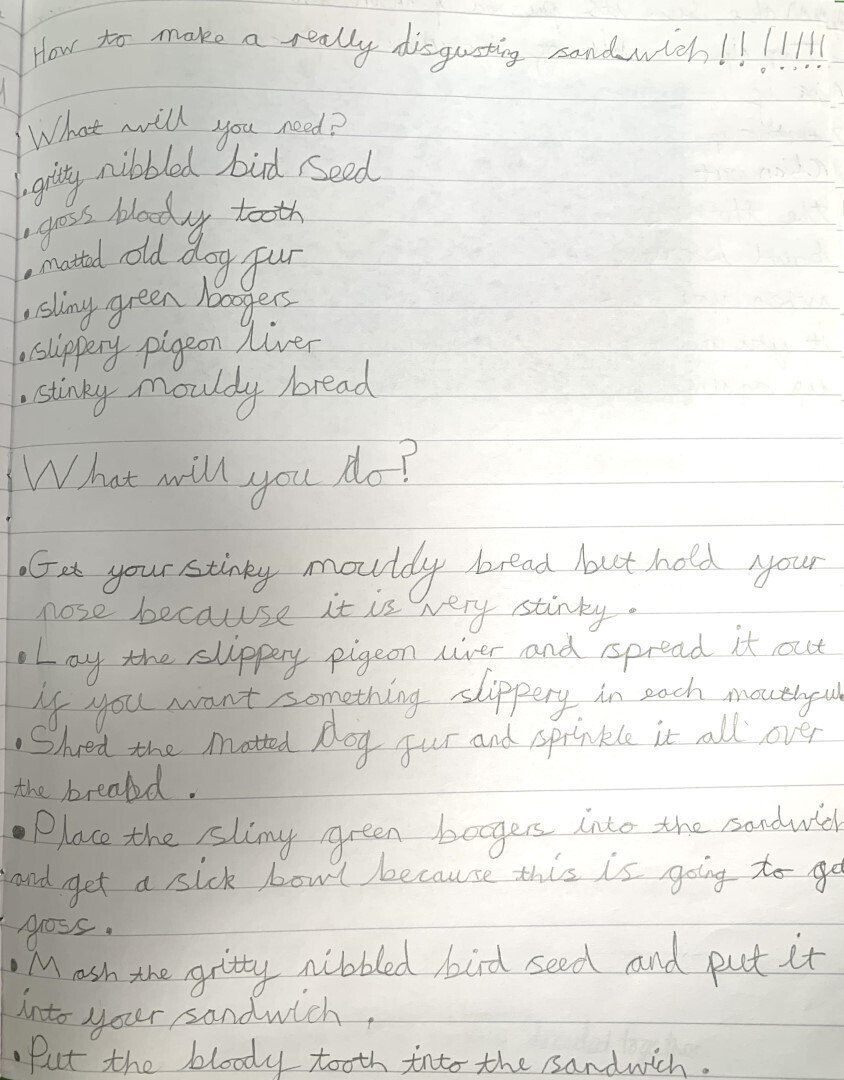 How to make a really disgusting sandwich!!!!!!!!
What will you need?
.gritty nibbled bird seed
.gross bloody tooth
.matted old dog fur
.slimy green boogers
.slippery pigeon liver
.stinky mouldy bread
What will you do?
.Get your stinky mouldy bread but hold your
nose because it is very stinky.
.Lay the slippery pigeon liver and spread it out
if you want something slippery in each mouthful.
.Shred the matted dog fur and sprinkle it all over
the bread.
.Place the slimy green boogers into the sandwich
and get a sick bowl because this is going to get
gross.
.Mash the gritty nibbled bird seed and put it
into your sandwich.
.Put the bloody tooth into the sandwich.